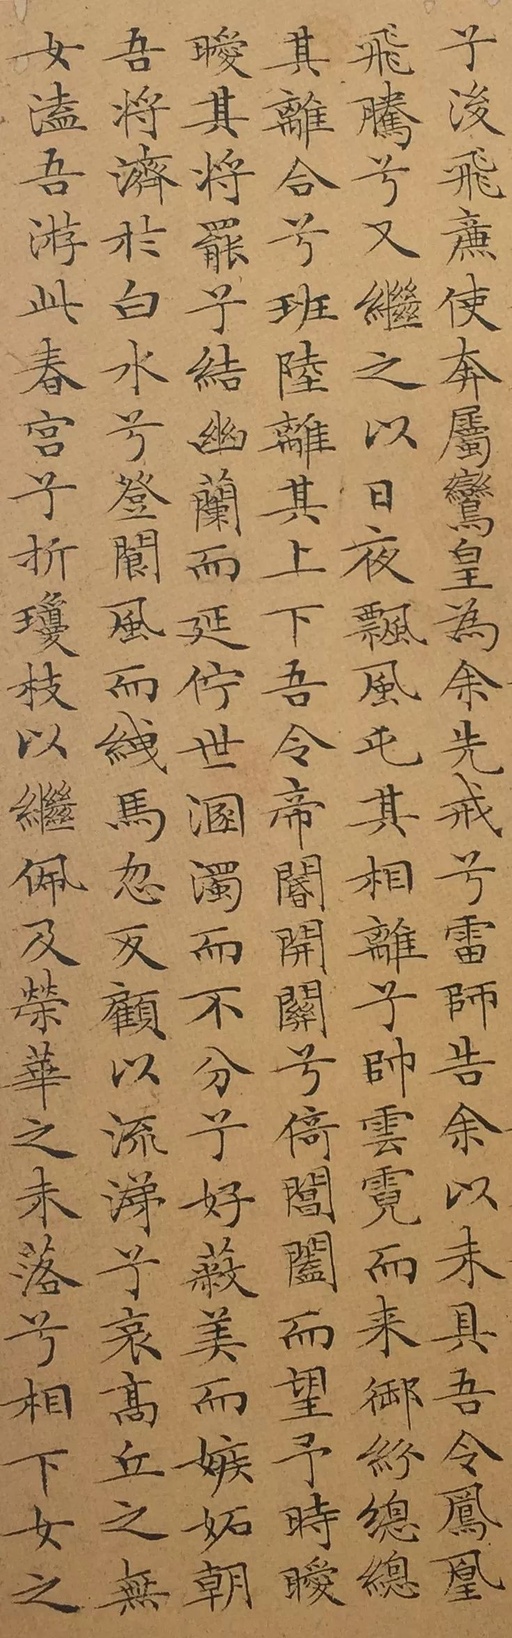 兮後飛廉使奔屬鸞皇為余先戒兮雷師告余以未具吾令鳳凰
飛騰兮又繼之以日夜飄風屯其相離兮帥雲霓而来御紛總總
其離合兮班陸離其上下吾令帝閽開關兮倚閶闔而望予時曖
曖其将罷兮結幽蘭而延佇世溷濁而不分兮好蔽美而嫉妬朝
吾将濟於白水兮登閬風而緤馬忽反顧以流涕兮哀高丘之無
女溘吾游此春宮兮折瓊枝以繼佩及榮華之未落兮相下女之